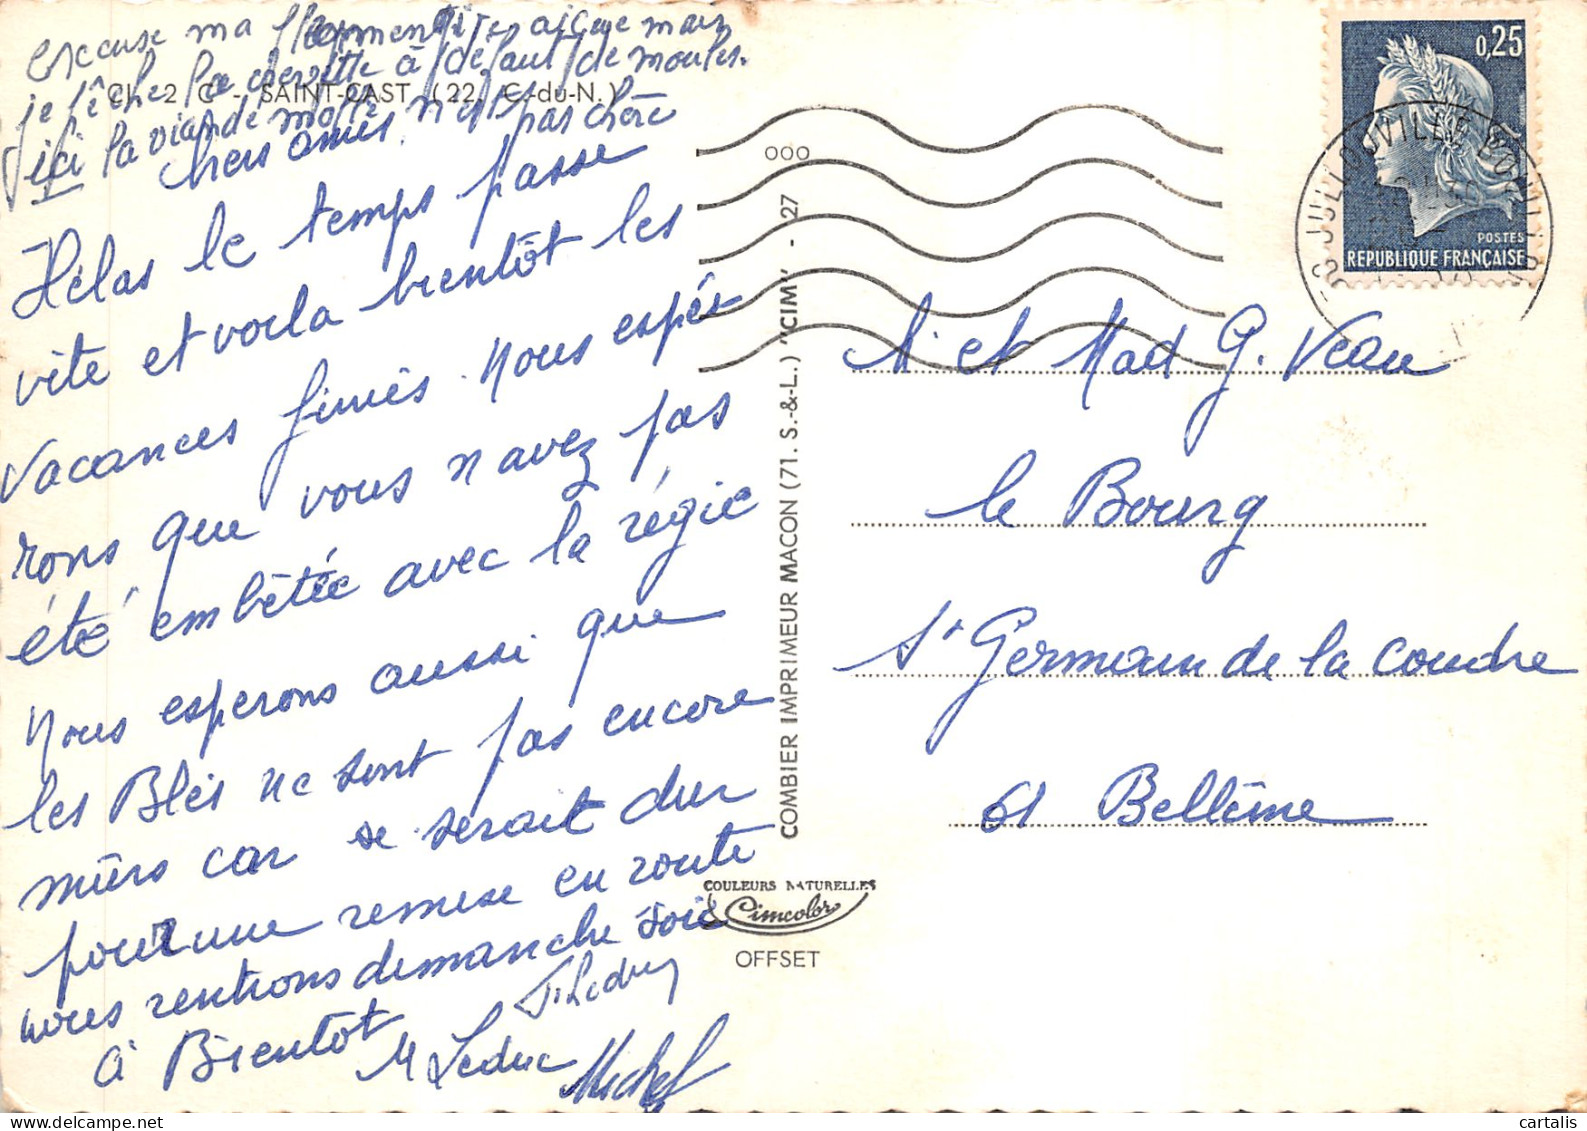 excuse ma flegmentite aigue mais
je pêche la crevette à défaut de moules.
ici la viande molle n'est pas chère
Ch. 2 C - SAINT-CAST (22. C.-du-N.)
Chers amis
Hélas le temps passe
vite et voila bientôt les
vacances finies. Nous espé
rons que vous n'avez pas
été embêtée avec la régie
Nous esperons aussi que
les Blés ne sont pas encore
mûrs car se serait dur
pour une remise en route
nous rentrons dimanche soir
à Bientôt
M Leduc
Michel
COMBIER IMPRIMEUR MACON (71. S.-&-L.) "CIM" - 27
COULEURS NATURELLES
Cimcolor
OFFSET
000
0,25
POSTES
REPUBLIQUE FRANÇAISE
JULLOUVILLE
M et Mad G. Veau
le Bourg
St Germain de la Coudre
61 Bellême
cartalis